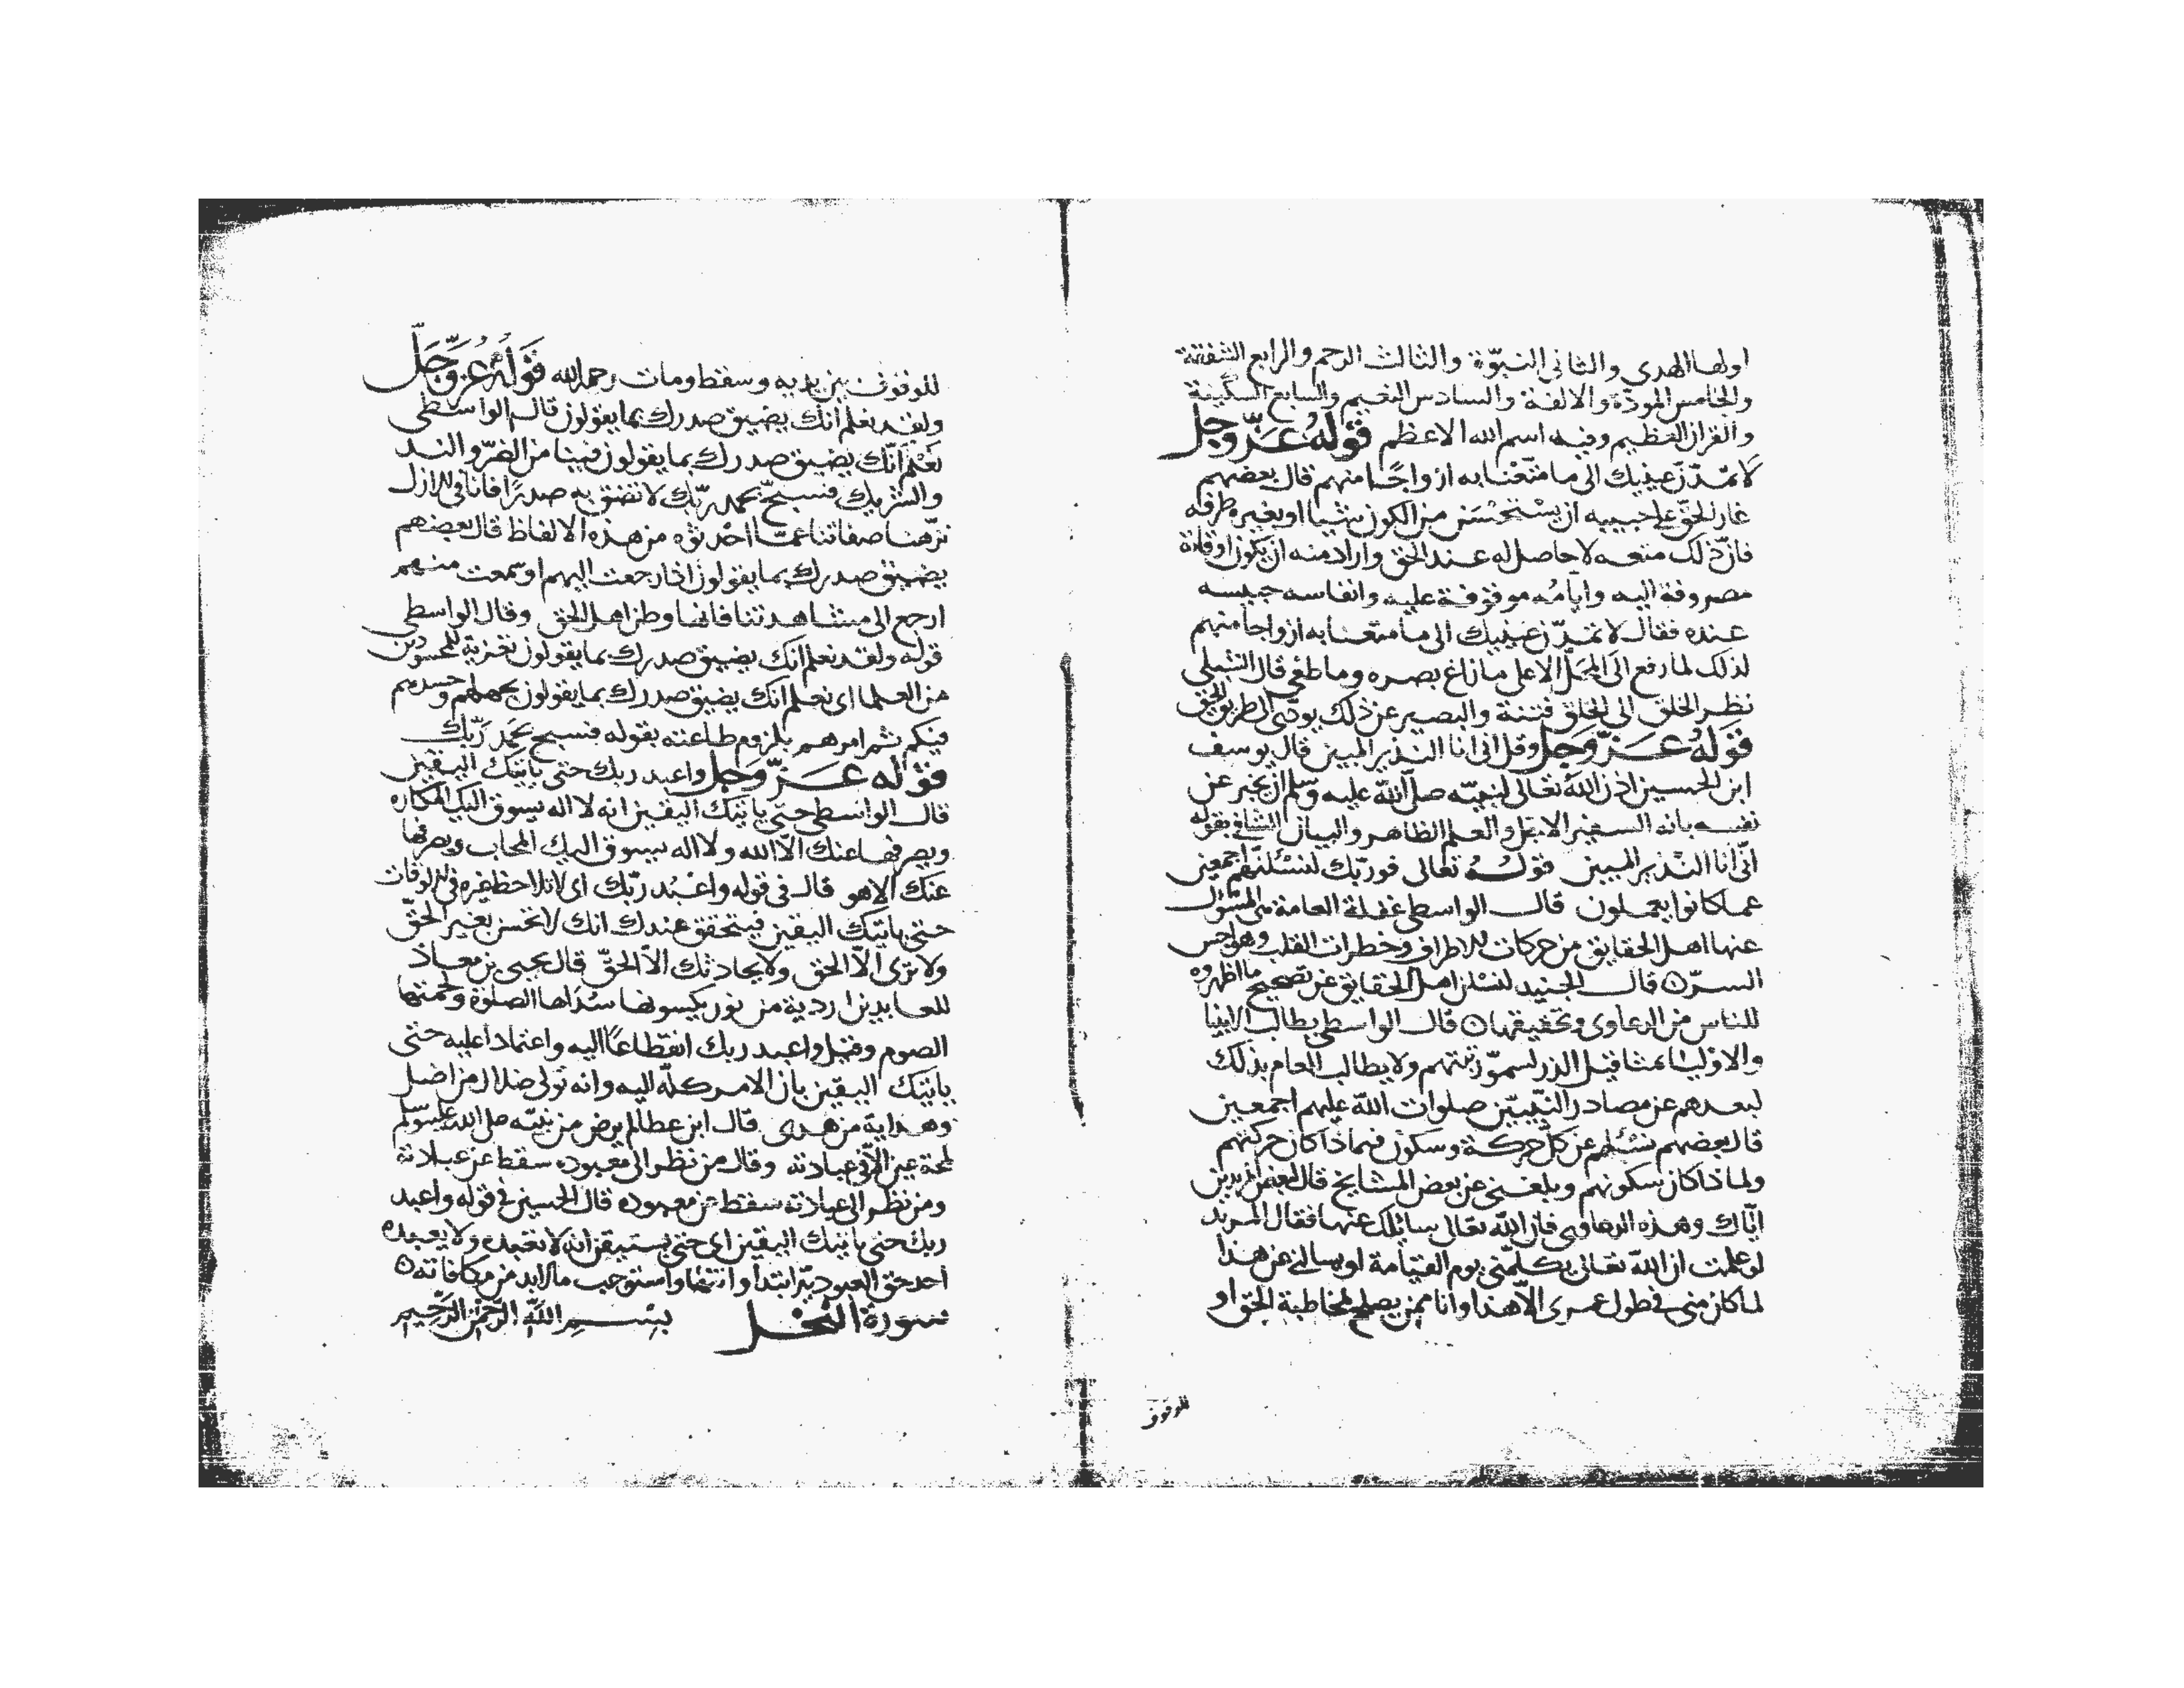 اولها الهدى والثانى النبوّة والثالث الرحم والرابع الشفقة
والخامس المودّة والالفة والسادس النعيم والسابع السكينة
والقران العظيم وفيه اسم الله الاعظم قوله عزّ وجل
لا تمدّن عينيك الى ما متّعنا به ازواجًا منهم قال بعضهم
غار الحقّ على حبيبه ان يستحسن من الكون شيا او يعيره طرفه
فانّ ذلك متعه لا حاصل له عند الحق واراد منه ان يكون اوقاته
مصروفة اليه وايامُه موقوفة عليه وانفاسه حبيسه
عنده فقال لا تمدّن عينيك الى ما متّعنا به ازواجا منهم
لذلك لما رفع الى المحلّ الاعلى ما زاغ بصره وما طغى قال الشبلى
نظر الخلق الى الخلق فتنة والبصير عن ذلك يودّى الى طريق الحق
قوله عزّ وجل وقل انى انا النذير المبين قال يوسف
ابن الحسين اذن الله تعالى لنبيّه صلّى الله عليه وسلم ان يخبر عن
نفسه بانه السفير الاجل والعلم الظاهر والبيان الشافى بقوله
انّى انا النذير المبين قولُهُ تعالى فوربّك لنسئلنّهم اجمعين
عما كانوا يعملون قال الواسطى غفلة العامة من المسؤل
عنها اهل الحقايق من حركات الاطراف وخطرات القلب وهواجس
السرّ ٥ قال الجنيد لنسئلن اهل الحقايق عن تصحيح ما اظهروه
للناس من الدعاوى وتحقيقها ٥ قال الواسطى يطالب الانبيا
والاوليا بمثاقيل الذر لسموّ رتبتهم ولا يطالب العام بذلك
لبعدهم عن مصادر النبيّين صلوات الله عليهم اجمعين
قال بعضهم نسئلهم عن كلّ حركة وسكون فيما ذا كان حركتهم
ولما ذا كان سكونهم وبلغنى عن بعض المشايخ قال لبعض المريدين
ايّاك وهذه الدعاوى فان الله تعالى سائلك عنها فقال المريد
لو علمت ان الله تعالى يكلّمنى يوم القيامة او يسالنى عن هذا
لما كان منى فى طول عمرى الّا هذا وانا ممن يصلح لمخاطبة الحق او
للوقوف
للوقوف بين يديه وسقط ومات رحمه الله قوله عزّ وجلّ
ولقد نعلم انك يضيق صدرك بما يقولون قال الواسطى
نعلم انّك يضيق صدرك بما يقولون فينا من الضدّ والند
والشريك فسبّح بحمد ربّك لا تضق به صدرًا فانا فى الازل
نزّهنا صفاتنا عمّا احدثوه من هذه الالفاظ قال بعضهم
يضيق صدرك بما يقولون اذا رجعت اليهم او سمعت منهم
ارجع الى مشاهدتنا فانها وطن اهل الحق وقال الواسطى
قوله ولقد نعلم انك يضيق صدرك بما يقولون تعزية للمحسودين
من العلما اى نعلم انك يضيق صدرك بما يقولون بجهلهم وحسدهم
فيكم ثم امرهم بلزوم طاعته بقوله فسبح بحمد ربّك
قوله عزّ وجل واعبد ربك حتى ياتيك اليقين
قال الواسطى حتى ياتيك اليقين انه لا اله يسوق اليك المكاره
ويصرفها عنك الّا الله ولا اله يسوق اليك المحاب ويصرفها
عنك الا هو قال فى قوله واعبُد ربّك اى لا تلاحظ غيره فى الاوقات
حتى ياتيك اليقين فيتحقق عندك انك لا تحس بغير الحقّ
ولا ترى الّا الحق ولا يحادثك الّا الحقّ قال يحيى بن معاذ
للعابدين اردية من نور يكسونها سُدَاها الصلوة ولحمتها
الصوم وقيل واعبد ربك انقطاعًا اليه واعتمادا عليه حتى
ياتيك اليقين بان الامر كلّه اليه وانه تولى ضلال من اضل
وهداية من هدى قال ابن عطا لم يرض من نبيّه صلى الله عليه وسلم
لمحة عين الّا فى عبادته وقال من نظر الى معبوده سقط عن عبادته
ومن نظر الى عبادته سقط عن معبوده قال الحسين فى قوله واعبد
ربك حتى ياتيك اليقين اى حتى يستيقن انه لا تعبده ولا يعبده
احد حق العبوديّة ابتدا وانتها واستوجب ما لا بد من مكافاته ٥
سورة النحل بسم الله الرّحمن الرّحيم